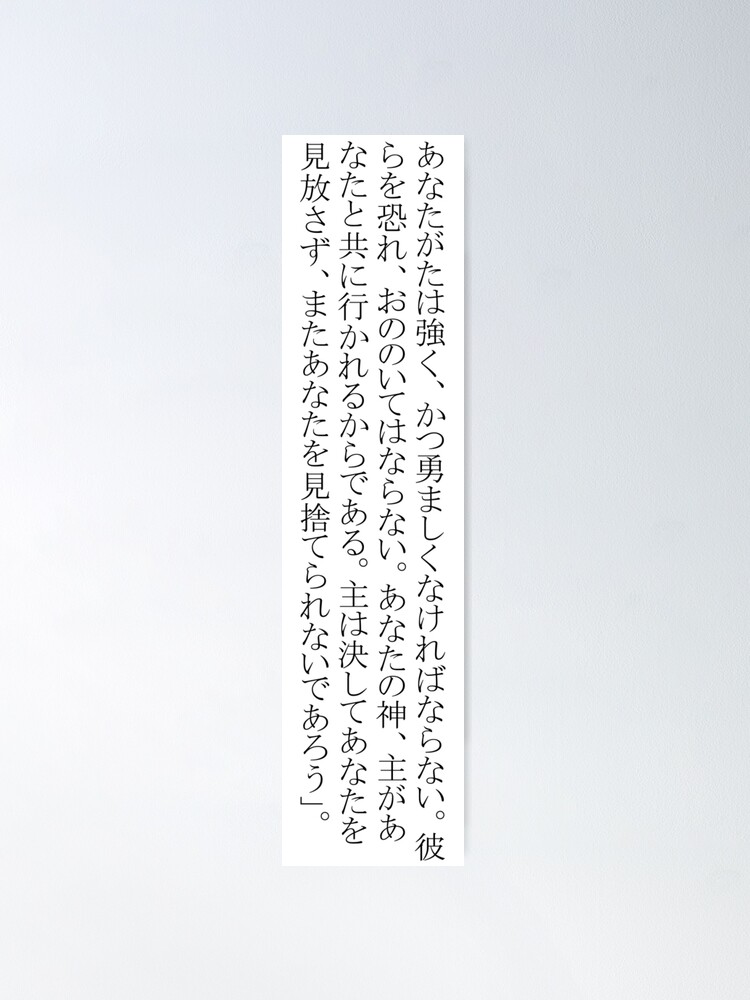 あなたがたは強く、かつ勇ましくなければならない。彼
らを恐れ、おののいてはならない。あなたの神、主があ
なたと共に行かれるからである。主は決してあなたを
見放さず、またあなたを見捨てられないであろう」。